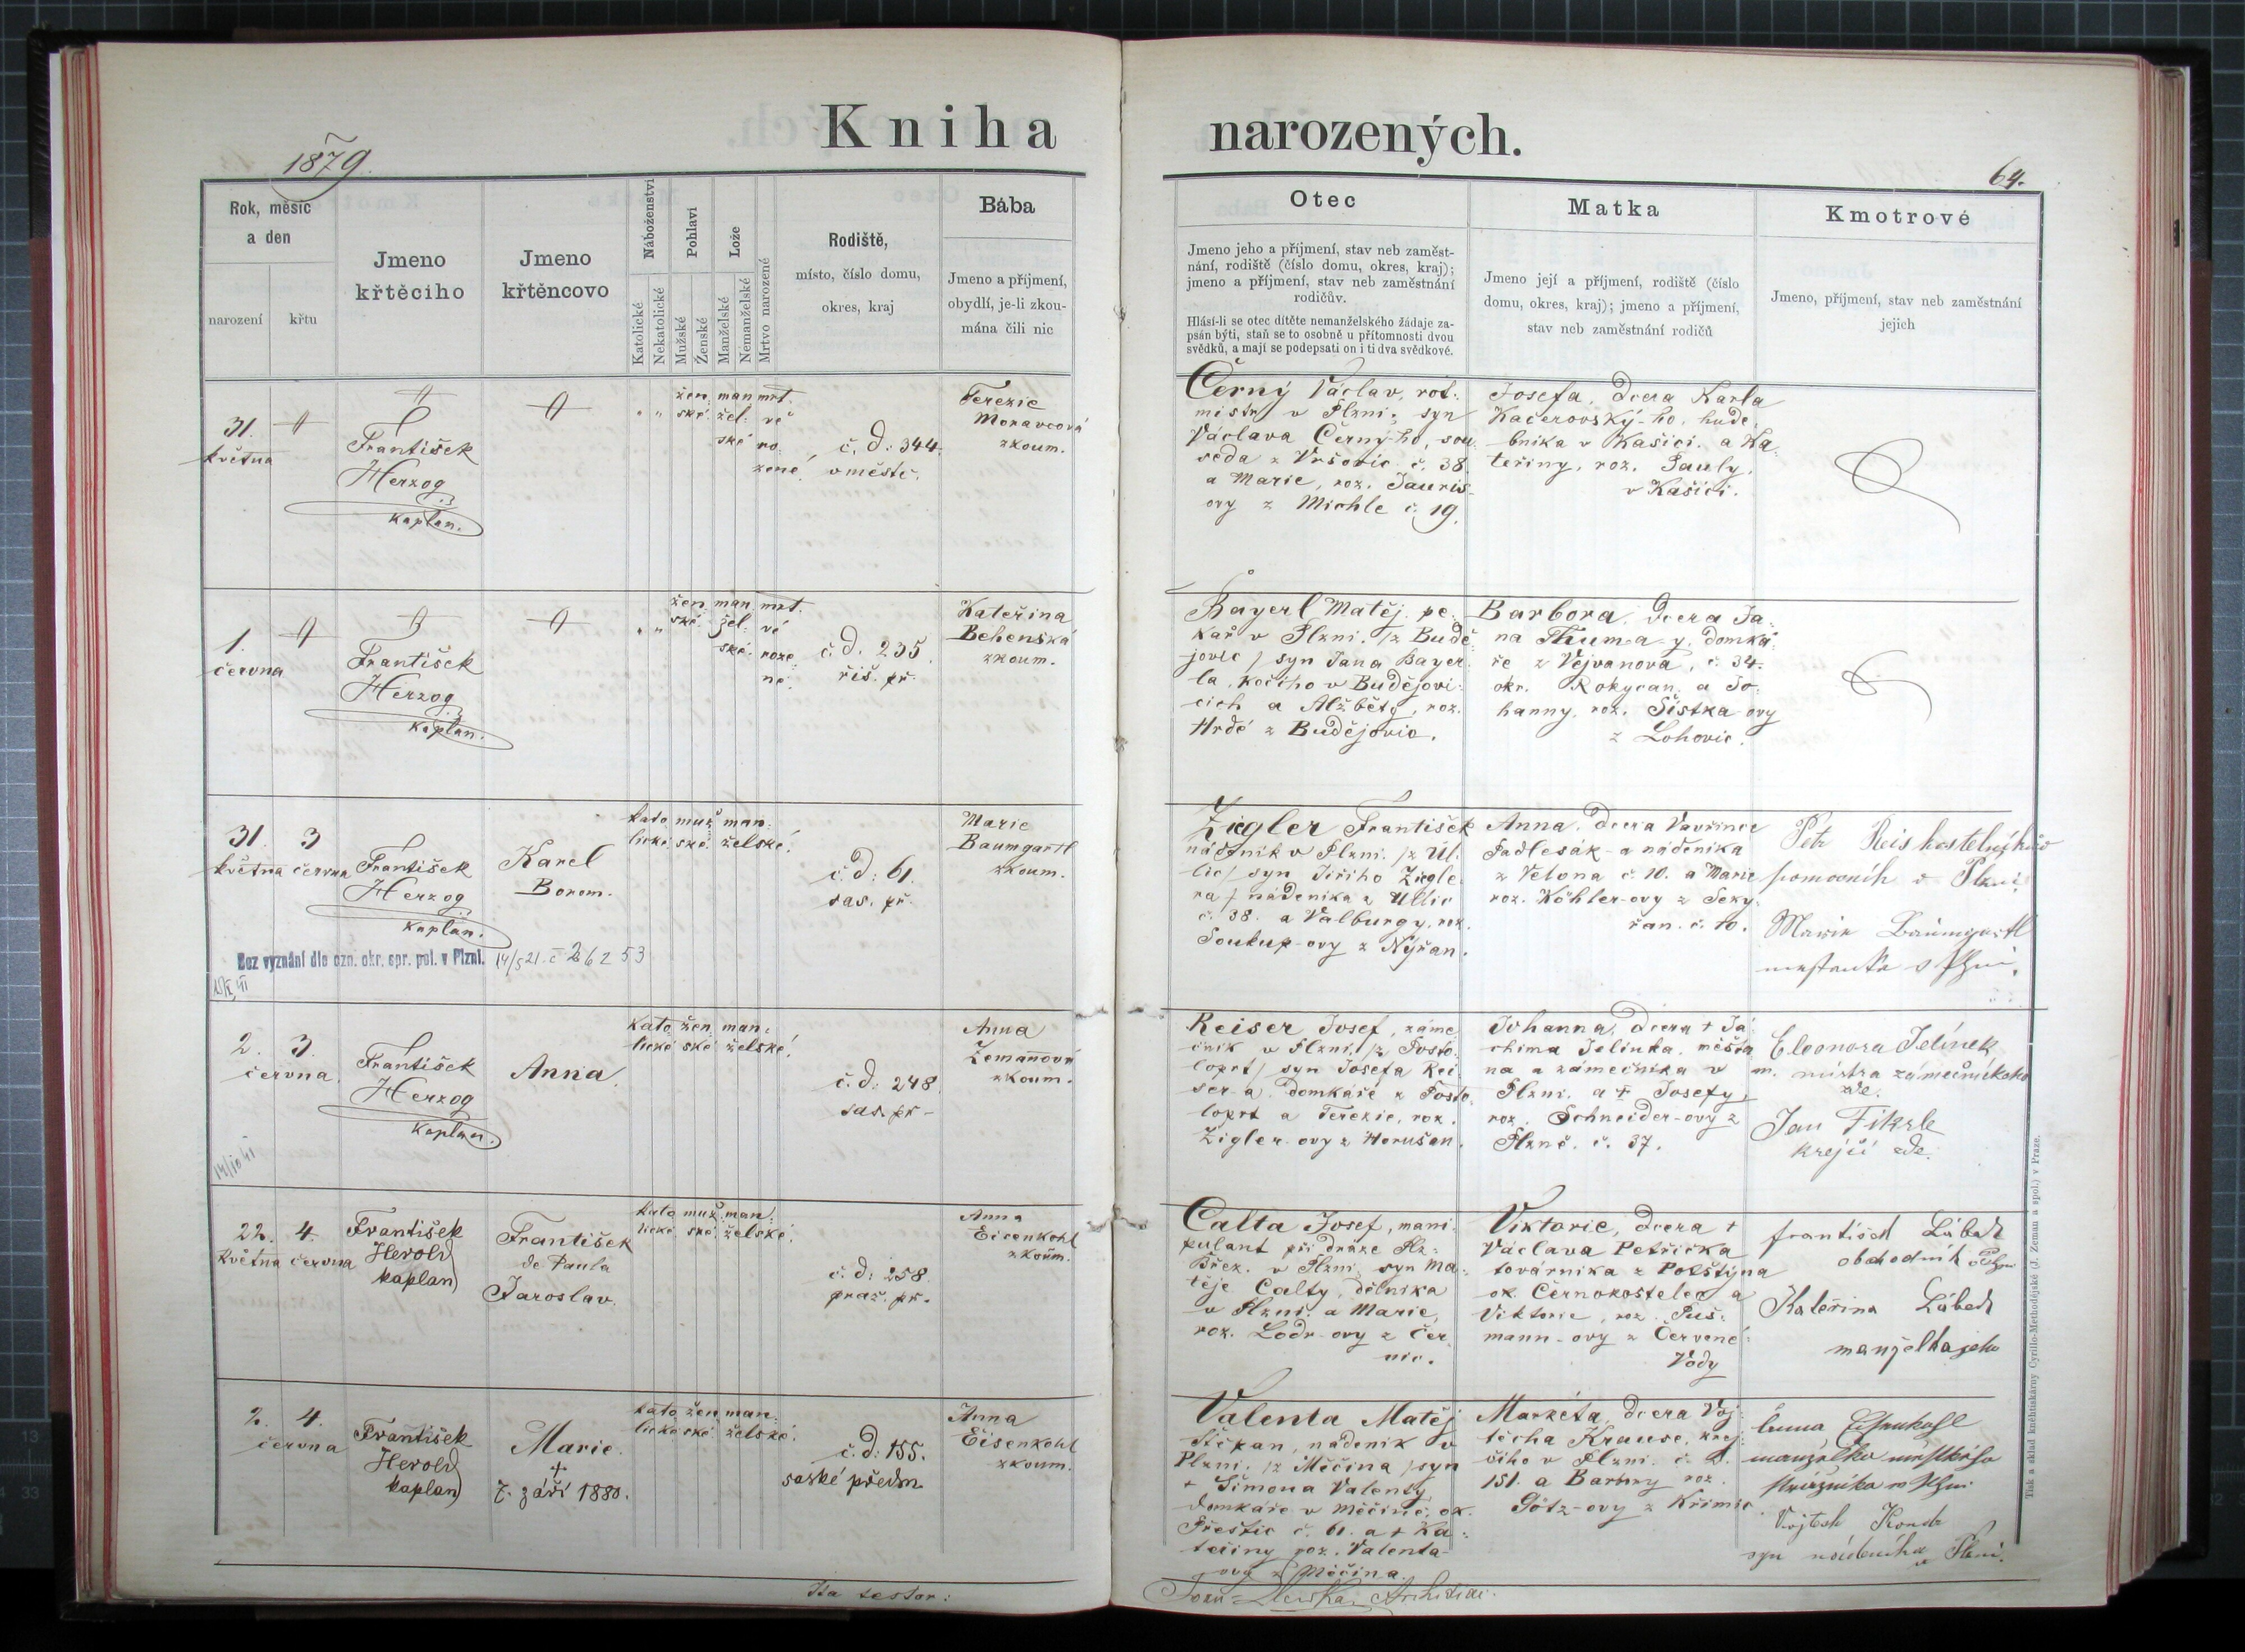 Kniha narozených.
1879.
64.
Rok, měsíc
a den
narození
křtu
Jmeno
křtěcího
Jmeno
křtěncovo
Náboženství
Katolické
Nekatolické
Pohlaví
Mužské
Ženské
Lože
Manželské
Nemanželské
Mrtvo narozené
Rodiště,
místo, číslo domu,
okres, kraj
Bába
Jmeno a příjmení,
obydlí, je-li zkou-
mána čili nic
Otec
Jmeno jeho a příjmení, stav neb zaměst-
nání, rodiště (číslo domu, okres, kraj);
jmeno a příjmení, stav neb zaměstnání
rodičův.
Hlásí-li se otec dítěte nemanželského žádaje za-
psán býti, staň se to osobně u přítomnosti dvou
svědků, a mají se podepsati on i ti dva svědkové.
Matka
Jmeno její a příjmení, rodiště (číslo
domu, okres, kraj); jmeno a příjmení,
stav neb zaměstnání rodičů
Kmotrové
Jmeno, příjmení, stav neb zaměstnání
jejich
31.
května
František
Herzog
kaplan.
žen man mrt.
ské. žel: vě
ské ro:
zené,
č. d: 344.
v městě.
Terezie
Moravcová
zkoum.
Černý Václav, rot-
mistr v Plzni, syn
Václava Černý-ho, sou
seda z Vršovic č. 38.
a Marie, roz. Jauris-
ovy z Michle č. 19.
Josefa, dcera Karla
Kačerovský-ho, hude
bníka v Kašici. a Ka:
teřiny, roz. Pauly,
v Kašici.
1.
června
František
Herzog
kaplan.
žen man mrt.
ské. žel: vé
ské. roze:
né.
č. d. 235.
říš. př.
Kateřina
Behenská
zkoum.
Bayerl Matěj, pe:
kař v Plzni. /z Budě-
jovic/ syn Jana Bayer
la, kočího v Budějovi:
cích a Alžběty, roz.
Hrdé z Budějovic.
Barbora, dcera Ja:
na Thuma-y, domká
ře z Vejvanova, č. 34.
okr. Rokycan, a Jo:
hanny, roz. Šístka-ovy
z Lohovic.
31. 3
května června
František
Herzog
kaplan.
Karel
Borom.
kato muž man:
lické. ské. želské.
č. d: 61.
sas. př.
Marie
Baumgartl
zkoum.
Ziegler František
nádeník v Plzni. /z Úl:
lic/ syn Jiřího Ziegle
ra, nádeníka z Ullic
č. 38. a Valburgy, roz.
Soukup-ovy z Nýřan.
Anna, dcera Vavřince
Padlesák-a nádeníka
č. 10. a Marie
roz. Köhler-ovy z Seky:
řan. č. 10.
Petr Reis
pomocník v Plzni
Marie Baumgartl
v Plzni.
Bez vyznání dle ozn. okr. spr. pol. v Plzni. 14/5 21. č 26253
2. 3.
června.
František
Herzog
kaplan.
Anna.
kato žen man:
lické ské želské.
č. d: 248.
sas. př-
Anna
Zemanová
zkoum.
Reiser Josef, záme
čník v Plzni. /z Posto:
loprt/ syn Josefa Rei
ser-a, domkáře z Posto:
loprt a Terezie, roz.
Zigler-ovy z Horušan.
Johanna, dcera + Já
chima Jelínka, měšťa
na a zámečníka v
Plzni, a + Josefy,
roz. Schneider-ovy z
Plzně. č. 37.
Eleonora Jelínek
m. mistra zámečnického
zde.
Jan Fikrle
krejčí zde.
14/10 41
22. 4.
května června
František
Herold
kaplan
František
de Paula
Jaroslav.
kato muž man.
lické. ské. želské.
č. d: 258.
praž. př.
Anna
Eisenkohl
zkoum.
Calta Josef, mani
pulant při dráze Plz:
Břez. v Plzni, syn Ma:
těje Calty, dělníka
v Plzni a Marie,
roz. Lodr-ovy z Čer
nic.
Viktorie, dcera +
Václava Petřička
továrníka z Polštýna
ok. Černokostelec a
Viktorie, roz. Puš:
mann-ovy z Červené
Vody
František Lábek
obchodník v Plzni
Kateřina Lábek
manželka jeho
2. 4.
června
František
Herold
kaplan
Marie.
+
7. září 1880.
kato žen man:
lické ské želské.
č. d: 155.
saské předm.
Anna
Eisenkohl
zkoum.
Valenta Matěj
Štěpan, nádeník v
Plzni. /z Měčína/ syn
+ Šimona Valenty,
domkáře v Měčíně, ok.
Přeštic č. 61. a + Ka:
teřiny roz. Valenta-
ový z Měčína
Markéta, dcera Voj:
těcha Krause, krej:
čího v Plzni. č. d.
151. a Barbory roz.
Götz-ovy z Křimic.
Anna Eisenkohl
manželka městského
strážníka v Plzni
Vojtěch
syn nádeníka v Plzni.
Ita testor:
Tisk a sklad knihtiskárny Cyrillo-Methodějské (J. Zeman a spol.) v Praze.